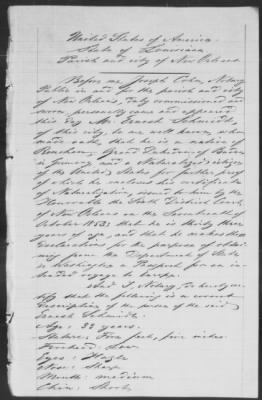 United States of America
State of Louisiana
Parish and city of New Orleans
Before me Joseph Cohn, Notary
Public in and for the parish and city
of New Orleans, duly commissioned and
sworn, personally came and appeared
this day Mr. Ernest Schmidt,
of this city, to me well known, who
made oath, that he is a native of
Grand Duchy of Baden
in Germany and a Naturalized citizen
of the United States for further proof
of which he encloses his certificate
of Naturalization, issued to him by the
Honorable the Sixth District Court,
of New Orleans on the Seventeenth of
October 1853; that he is thirty three
years of age and that he makes this
declaration for the purpose of obtai-
ning from the Department of State
in Washington a Passport for an in-
tended voyage to Europe.
And I, Notary, do hereby cer-
tify that the following is a correct
description of the person of the said
Ernest Schmidt:
Age: 33 years.
Stature: Five feet, five inches.
Forehead: Low
Eyes: Hazle
Nose: Sharp
Mouth: medium
Chin: Short